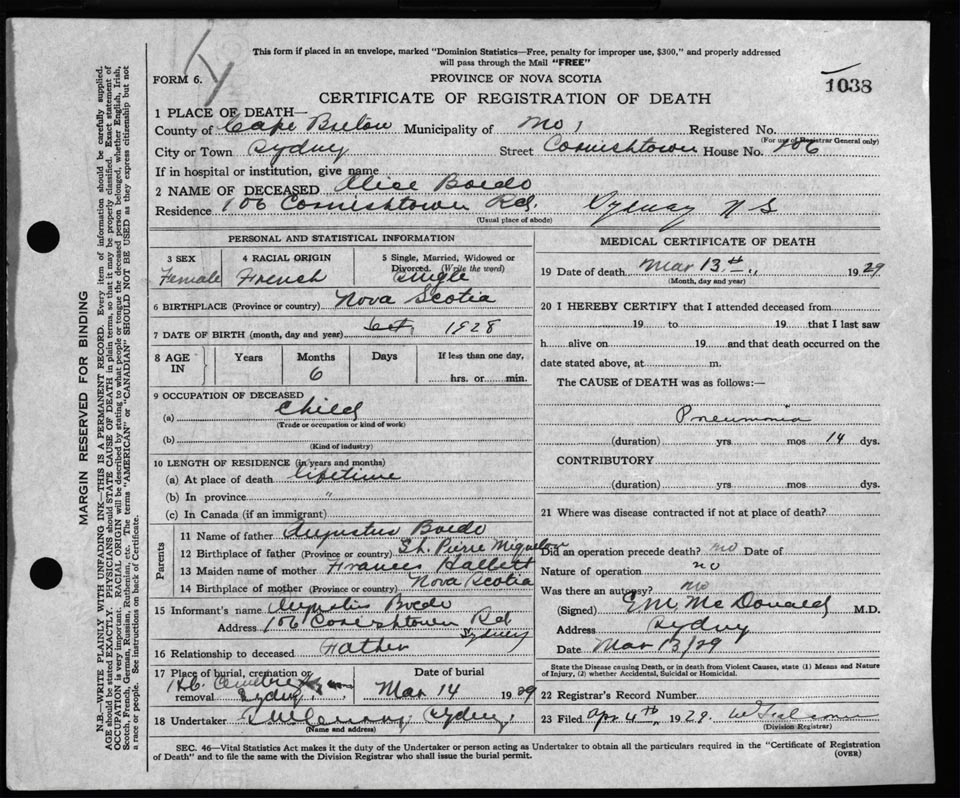 This form if placed in an envelope, marked "Dominion Statistics—Free, penalty for improper use, $300," and properly addressed
will pass through the Mail "FREE"
FORM 6.
PROVINCE OF NOVA SCOTIA
1038
CERTIFICATE OF REGISTRATION OF DEATH
1 PLACE OF DEATH—
County of Cape Breton Municipality of No 1 Registered No.
(For use of Registrar General only)
City or Town Sydney Street Cornishtown House No. 106
If in hospital or institution, give name
2 NAME OF DECEASED Alice Boedo
Residence 106 Cornishtown Rd. Sydney N S
(Usual place of abode)
PERSONAL AND STATISTICAL INFORMATION
3 SEX Female
4 RACIAL ORIGIN French
5 Single, Married, Widowed or
Divorced. (Write the word)
Single
6 BIRTHPLACE (Province or country) Nova Scotia
7 DATE OF BIRTH (month, day and year) 1928
8 AGE IN
Years Months Days If less than one day,
6 hrs. or min.
9 OCCUPATION OF DECEASED
(a) Child
(Trade or occupation or kind of work)
(b)
(Kind of industry)
10 LENGTH OF RESIDENCE (in years and months)
(a) At place of death lifetime
(b) In province "
(c) In Canada (if an immigrant)
Parents
11 Name of father Augustus Boedo
12 Birthplace of father (Province or country) St. Pierre Miquelon
13 Maiden name of mother Frances Hallett
14 Birthplace of mother (Province or country) Nova Scotia
15 Informant's name Augustus Boedo
Address 106 Cornishtown Rd
Sydney
16 Relationship to deceased Father
17 Place of burial, cremation or
removal Sydney
Date of burial
Mar 14 1929
18 Undertaker Sydney
(Name and address)
MEDICAL CERTIFICATE OF DEATH
19 Date of death Mar 13th 1929
(Month, day and year)
20 I HEREBY CERTIFY that I attended deceased from
19 to 19 that I last saw
h alive on 19 and that death occurred on the
date stated above, at m.
The CAUSE of DEATH was as follows:—
Pneumonia
(duration) yrs mos 14 dys.
CONTRIBUTORY
(duration) yrs mos dys.
21 Where was disease contracted if not at place of death?
Did an operation precede death? no Date of
Nature of operation no
Was there an autopsy? no
(Signed) E M McDonald M.D.
Address Sydney
Date Mar 13/29
State the Disease causing Death, or in death from Violent Causes, state (1) Means and Nature
of Injury, (2) whether Accidental, Suicidal or Homicidal.
22 Registrar's Record Number
23 Filed Apr 4th 1929.
(Division Registrar)
SEC. 46—Vital Statistics Act makes it the duty of the Undertaker or person acting as Undertaker to obtain all the particulars required in the "Certificate of Registration
of Death" and to file the same with the Division Registrar who shall issue the burial permit.
(OVER)
MARGIN RESERVED FOR BINDING
N.B.—WRITE PLAINLY WITH UNFADING INK—THIS IS A PERMANENT RECORD. Every item of information should be carefully supplied.
AGE should be stated EXACTLY. PHYSICIANS should STATE CAUSE OF DEATH in plain terms, so that it may be properly classified. Exact statement of
OCCUPATION is very important. RACIAL ORIGIN will be described by stating to what people or tongue the deceased person belonged, whether English, Irish,
Scotch, French, German, Russian, Ruthenian, etc. The terms "AMERICAN" or "CANADIAN" SHOULD NOT BE USED as they express citizenship but not
a race or people. See instructions on back of Certificate.